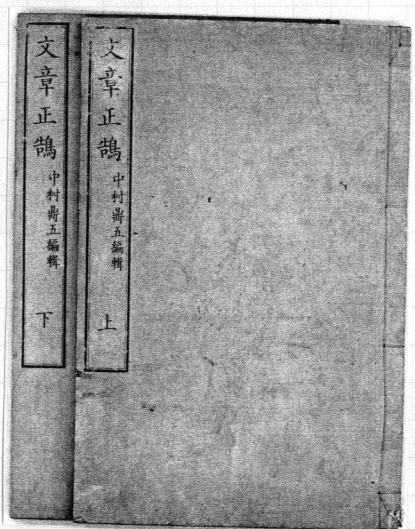 文章正鵠 中村鼎五編輯 上
文章正鵠 中村鼎五編輯 下